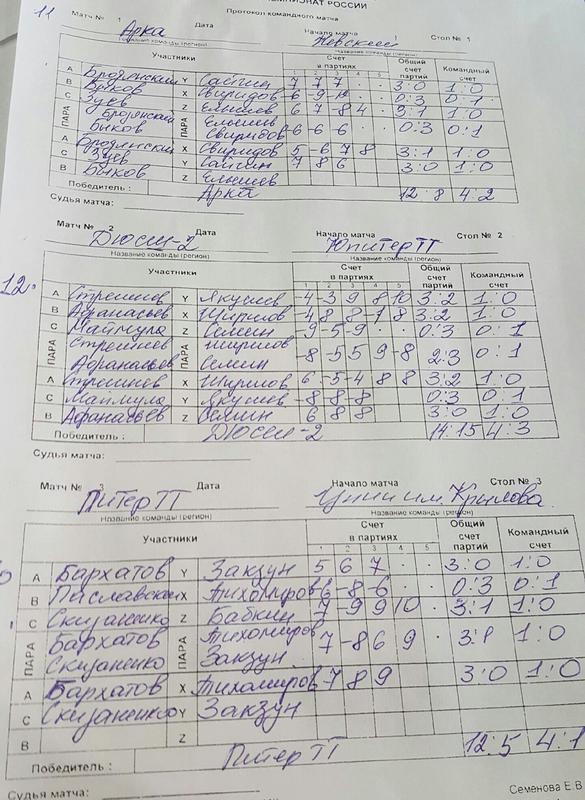 ЧЕМПИОНАТ РОССИИ
Протокол командного матча
11 Матч № 1 Дата Начало матча Стол № 1
Арка Невский
Название команды (регион) Название команды (регион)
Участники Счет в партиях Общий счет партий Командный счет
1 2 3 4 5
А Бродянский Y Сайгин 7 7 7 · · 3:0 1:0
В Быков X Свиридов 0:3 0:1
С Зуев Z Елисеев 6 7 -8 4 · 3:1 1:0
ПАРА Бродянский Быков ПАРА Елисеев Свиридов -6 -6 -6 0:3 0:1
А Бродянский X Свиридов 5 -6 7 8 3:1 1:0
С Зуев Y Сайгин 7 8 6 3:0 1:0
В Быков Z Елисеев
Победитель : Арка 12:8 4:2
Судья матча:
Матч № 2 Дата Начало матча Стол № 2
12.
ДЮСШ-2 Юпитер ТТ
Название команды (регион) Название команды (регион)
Участники Счет в партиях Общий счет партий Командный счет
1 2 3 4 5
А Стрешнев Y Якушев -4 -3 9 8 10 3:2 1:0
В Афанасьев X Ширшов -4 8 8 -7 8 3:2 1:0
С Маймула Z Семин -9 -5 -9 · · 0:3 0:1
ПАРА Стрешнев Афанасьев ПАРА Ширшов Семин -8 -5 5 9 -8 2:3 0:1
А Стрешнев X Ширшов 6 -5 -4 8 8 3:2 1:0
С Маймула Y Якушев -8 -8 -8 0:3 0:1
В Афанасьев Z Семин 6 8 8 3:0 1:0
Победитель : ДЮСШ-2 14:15 4:3
Судья матча:
Матч № 3 Дата Начало матча Стол № 3
Питер ТТ ЦНИИ им. Крылова
Название команды (регион) Название команды (регион)
Участники Счет в партиях Общий счет партий Командный счет
1 2 3 4 5
А Бархатов Y Закзун 5 6 7 · · 3:0 1:0
В X Тихомиров -6 -8 -6 · · 0:3 0:1
С Скизаненко Z Бабкин 7 -9 9 10 · 3:1 1:0
ПАРА Бархатов Скизаненко ПАРА Тихомиров Закзун 7 -8 6 9 · 3:1 1:0
А Бархатов X Тихомиров 7 8 9 3:0 1:0
С Скизаненко Y Закзун
В Z
Победитель : Питер ТТ 12:5 4:1
Судья матча:
Семенова Е.В